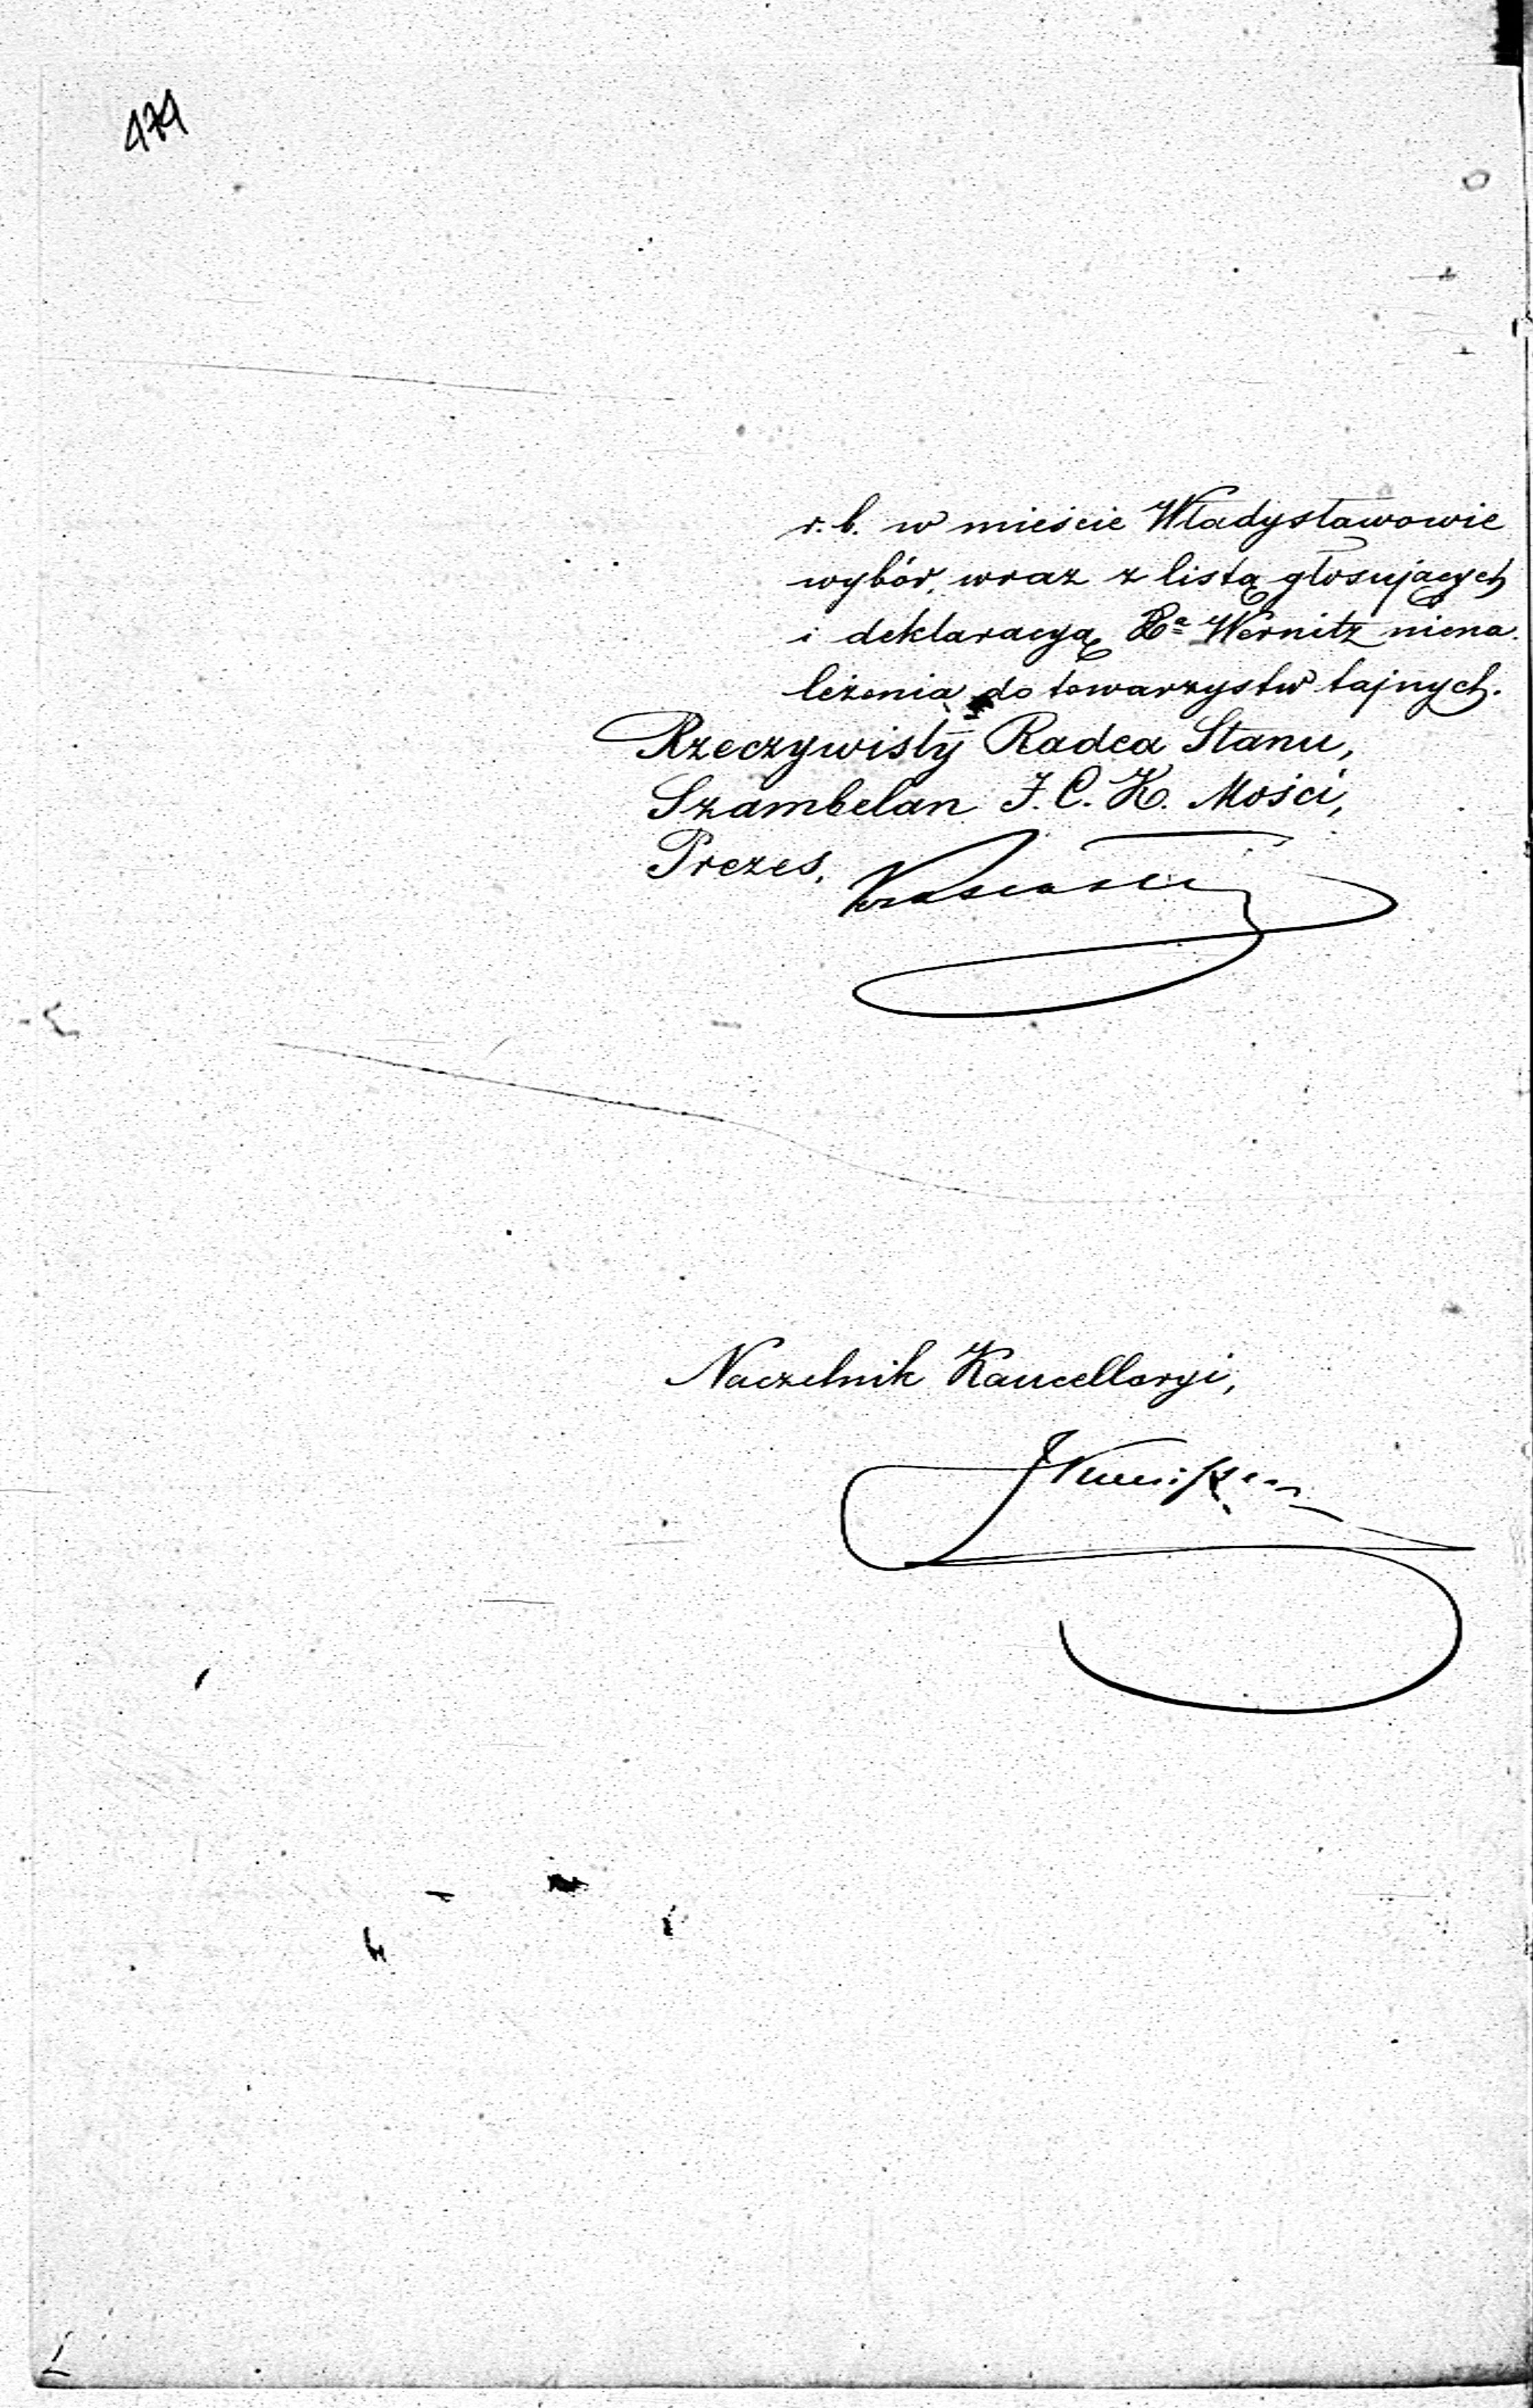 474
r. b. w mieście Władysławowie
wybór, wraz z listą głosujących
i deklaracyą Xa Wernitz niena-
leżenia do towarzystw tajnych.
Rzeczywisty Radca Stanu,
Szambelan J. C. K. Mości,
Prezes,
Naczelnik Kancellaryi,